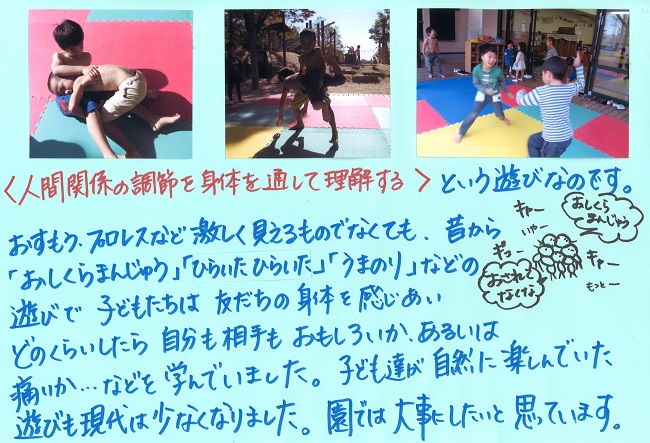 〈人間関係の調節を身体を通して理解する〉という遊びなのです。
おすもう、プロレスなど激しく見えるものでなくても、昔から
「おしくらまんじゅう」「ひらいたひらいた」「うまのり」などの
遊びで 子どもたちは 友だちの身体を感じあい
どのくらいしたら 自分も相手も おもしろいか、あるいは
痛いか…などを 学んでいました。子ども達が 自然に 楽しんでいた
遊びも現代は少なくなりました。園では 大事にしたいと 思っています。
おしくら
まんじゅう
キャー
いゃー
ギュー
キャー
もっとー
おされて
なくな